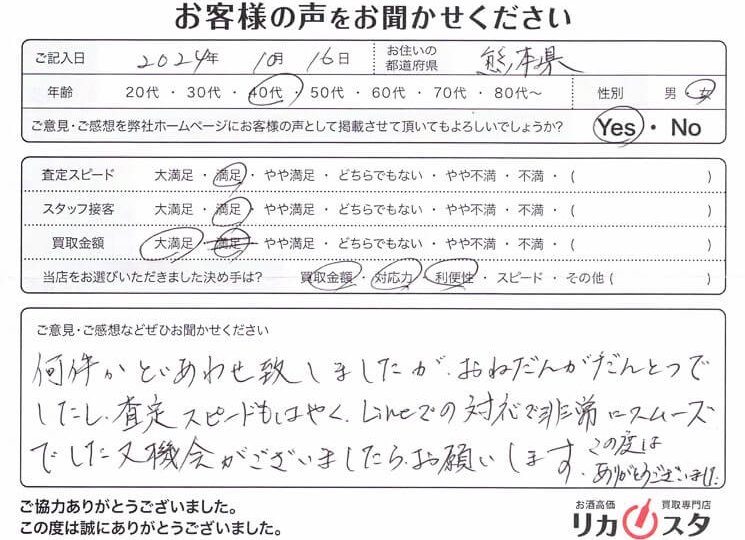 お客様の声をお聞かせください
ご記入日 2024年 10月 16日 お住いの都道府県 熊本県
年齢 20代・30代・40代・50代・60代・70代・80代〜 性別 男 女
ご意見・ご感想を弊社ホームページにお客様の声として掲載させて頂いてもよろしいでしょうか? Yes・No
査定スピード 大満足・満足・やや満足・どちらでもない・やや不満・不満・( )
スタッフ接客 大満足・満足・やや満足・どちらでもない・やや不満・不満・( )
買取金額 大満足・満足・やや満足・どちらでもない・やや不満・不満・( )
当店をお選びいただきました決め手は? 買取金額・対応力・利便性・スピード・その他( )
ご意見・ご感想などぜひお聞かせください
何件かといあわせ致しましたが、おねだんがだんとつで
したし、査定スピードもはやく、Lineでの対応で非常にスムーズ
でした又機会がございましたら、お願いします。この度は
ありがとうございました。
ご協力ありがとうございました。
この度は誠にありがとうございました。
お酒高価 買取専門店
リカスタ